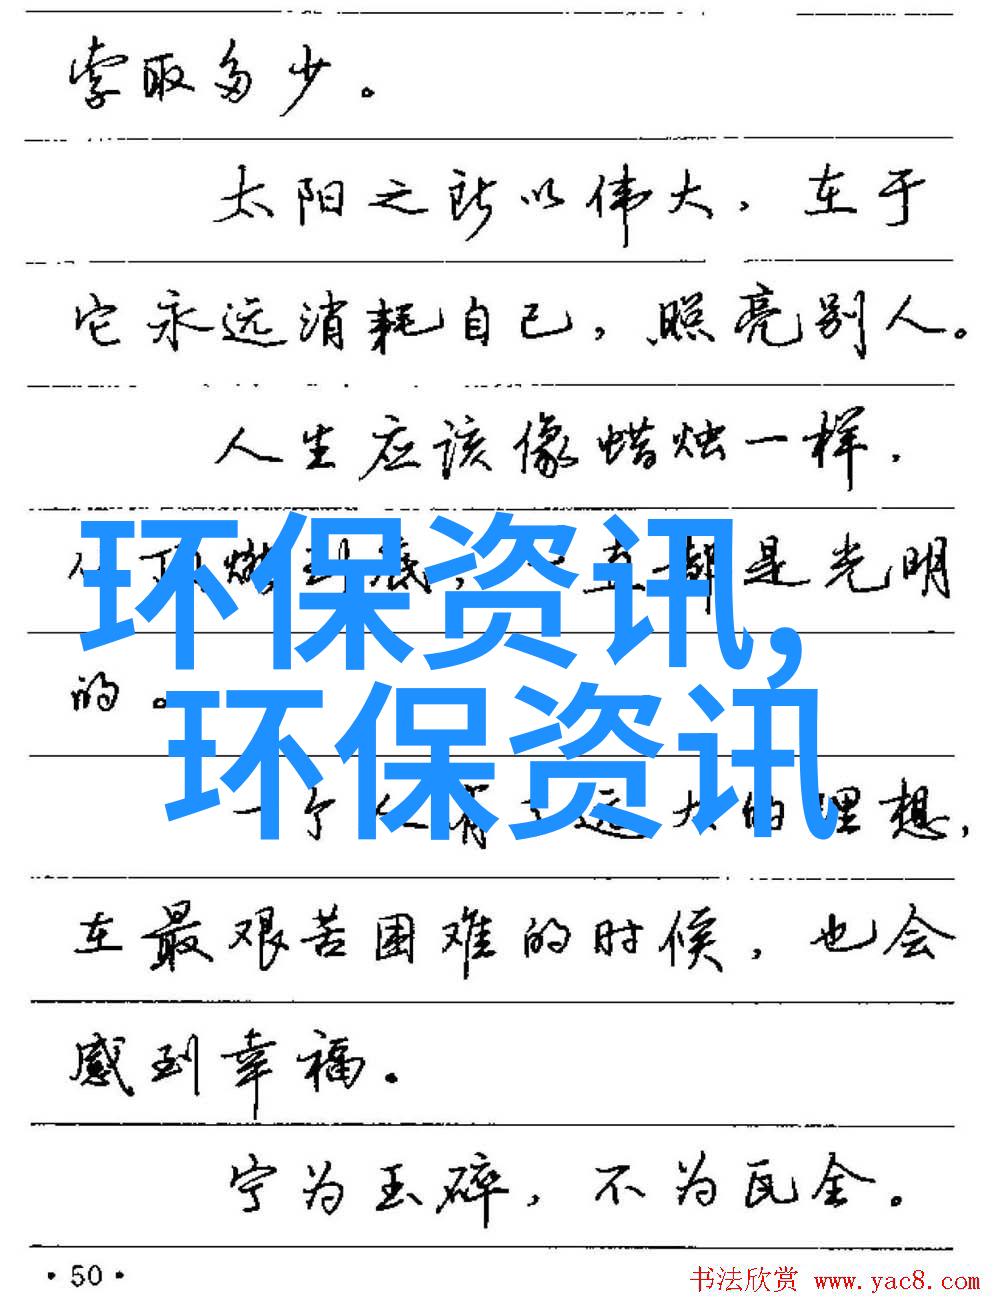 索取多少。
太阳之所以伟大，在于
它永远消耗自己，照亮别人。
人生应该像蜡烛一样，
从顶燃到底，一直都是光明
环保资讯，
的。
环保资讯
一个人有了远大的理想，
在最艰苦困难的时候，也会
感到幸福。
宁为玉碎，不为瓦全。
·50·
书法欣赏 www.yac8.com